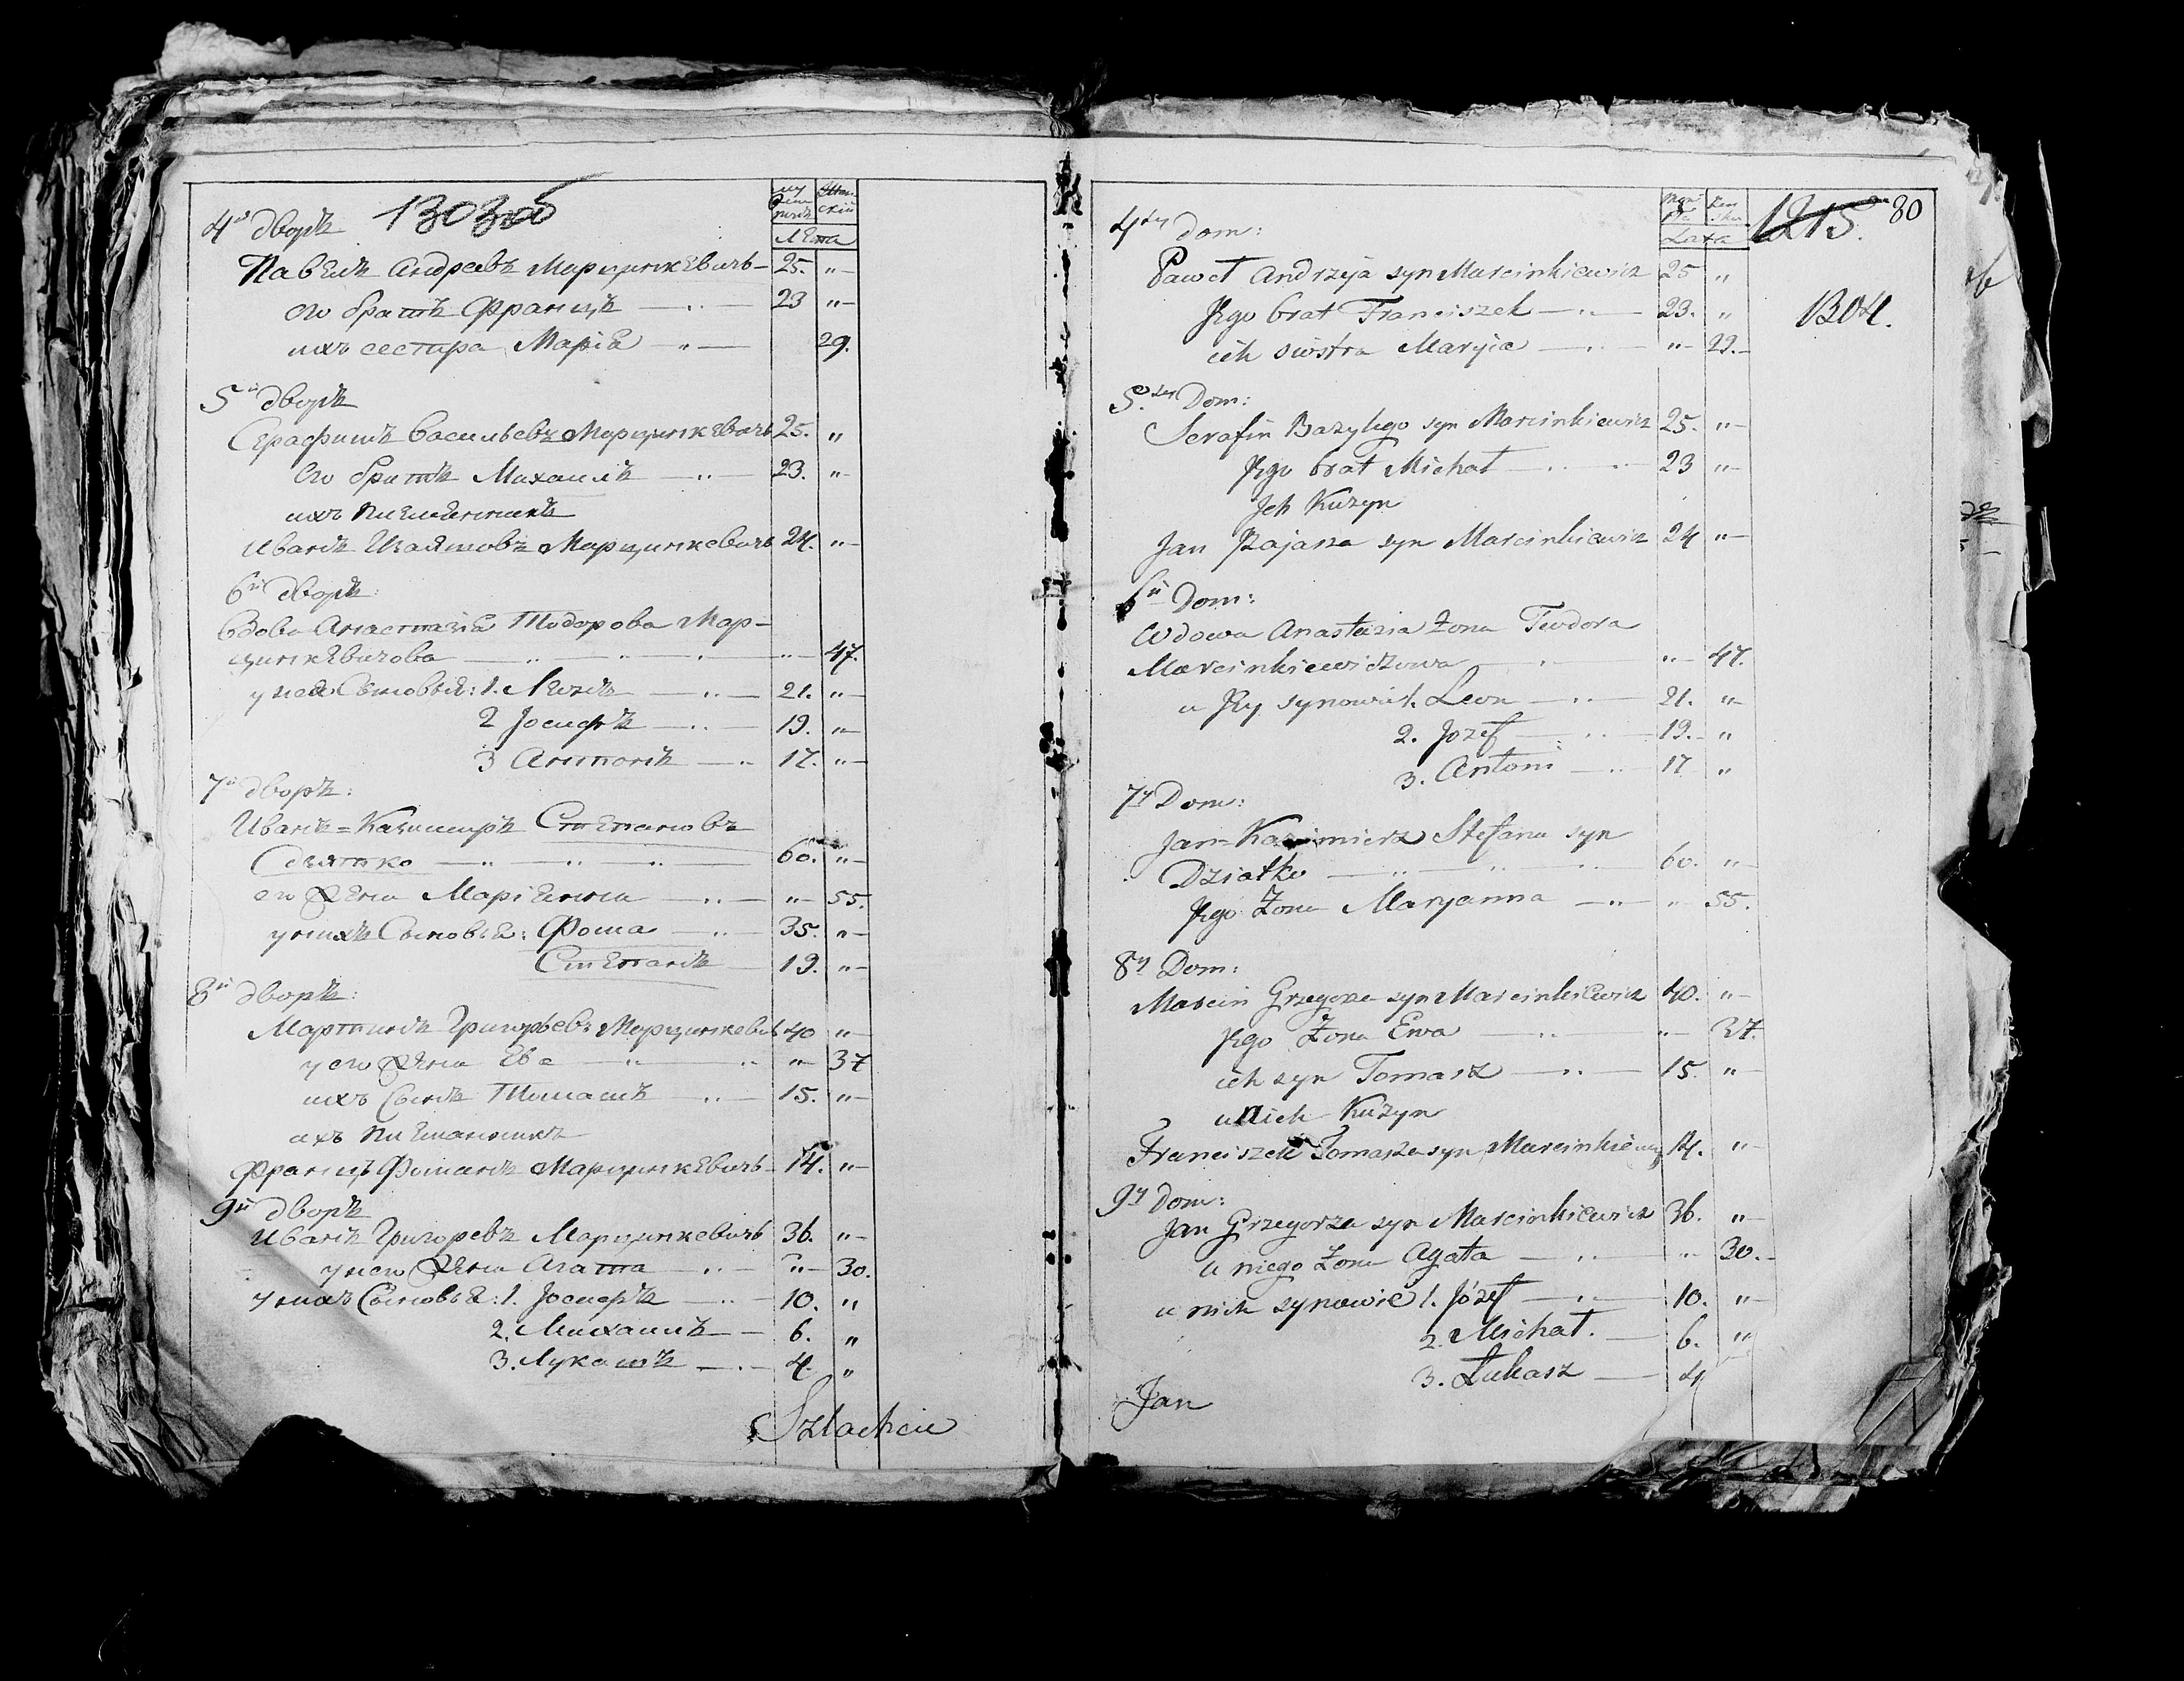 4й дворъ 1303 об
мужескій женскій
Лѣта
Павелъ Андреевъ Марцинкевичъ — 25. "
его братъ Францъ — 23 "
ихъ сестра Марія — " — 29.
5й дворъ
Серафимъ Васильевъ Марцинкевичъ 25. "
его братъ Михаилъ — 23. "
ихъ племянникъ
Иванъ Марцинкевичъ 24. "
6й дворъ:
Вдова Анастазія Тодорова Мар-
цинкевичова — " 47.
у нея Сыновья: 1. Леонъ — 21. "
2 Іосифъ — 19. "
3 Антонъ — 17. "
7й дворъ:
Иванъ=Казимиръ Степановъ
Дзятко — 60. "
его жена Маріанна — " 55.
у нихъ Сыновья: Фома — 35. "
Степанъ — 19. "
8й дворъ:
Мартинъ Григорьевъ Марцинкевичъ 40 "
у его жена Ева — " 37
ихъ Сынъ Томашъ — 15. "
ихъ племянникъ
Францъ Марцинкевичъ — 14. "
9й дворъ
Иванъ Григоревъ Марцинкевичъ 36. "
у него жена Агата — " 30.
у нихъ Сыновья: 1. Іосифъ — 10. "
2. Михаилъ — 6. "
3. Лукашъ — 4. "
Szlachcic
4ty dom:
Lata
1215. 80
1304.
Paweł Andrzeja syn Marcinkiewicz 25 "
Jego brat Franciszek — 23. "
ich siostra Maryia — " 29.
5.ty Dom:
Serafin Bazylego syn Marcinkiewicz 25. "
Jego brat Michał — 23 "
Jch Kuzyn
Jan syn Marcinkiewicz 24 "
6ty Dom:
Wdowa Anastazia Żona Teodora
Marcinkiewiczowa — " 47.
u Jey synowie 1. Leon — 21. "
2. Jozef — 19. "
3. Antoni — 17 "
7y Dom:
Jan-Kazimierz Stefana syn
Dziatko — 60. "
Jego Żona Maryanna — " 55.
8y Dom:
Marcin Grzegorza syn Marcinkiewicz 40. "
Jego Żona Ewa — " 37.
ich syn Tomasz — 15. "
u nich Kuzyn
Franciszek Tomasza syn Marcinkiewicz 14. "
9y Dom:
Jan Grzegorza syn Marcinkiewicz 36. "
u niego Żona Agata — " 30.
u nich synowie 1. Józef — 10. "
2. Michał. — 6. "
3. Łukasz — 4
Jan